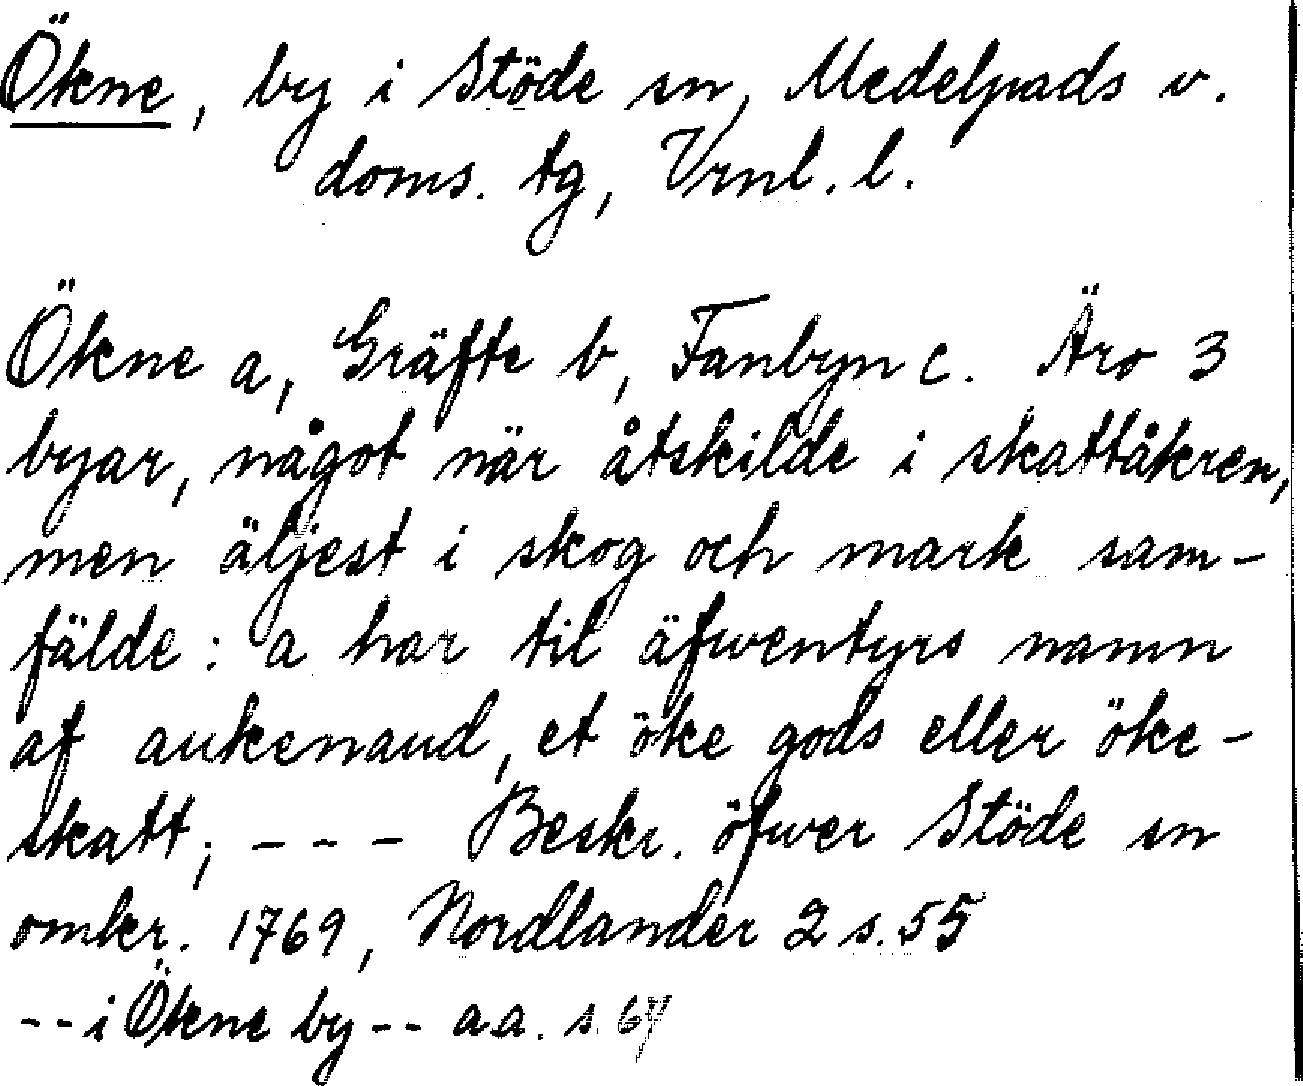 Ökne, by i Stöde sn, Medelpads v.
doms. tg, Vrnl. l.
Ökne a, Gräfte b, Fanbyn c. Äro 3
byar, något när åtskilde i skattåkren,
men äljest i skog och mark sam-
fälde: a har til äfwentyrs namn
af aukenaud, et öke gods eller öke-
skatt; - - - Beskr. öfwer Stöde sn
omkr. 1769, Nordlander 2 s. 55
- - i Ökne by - - a.a. s. 64